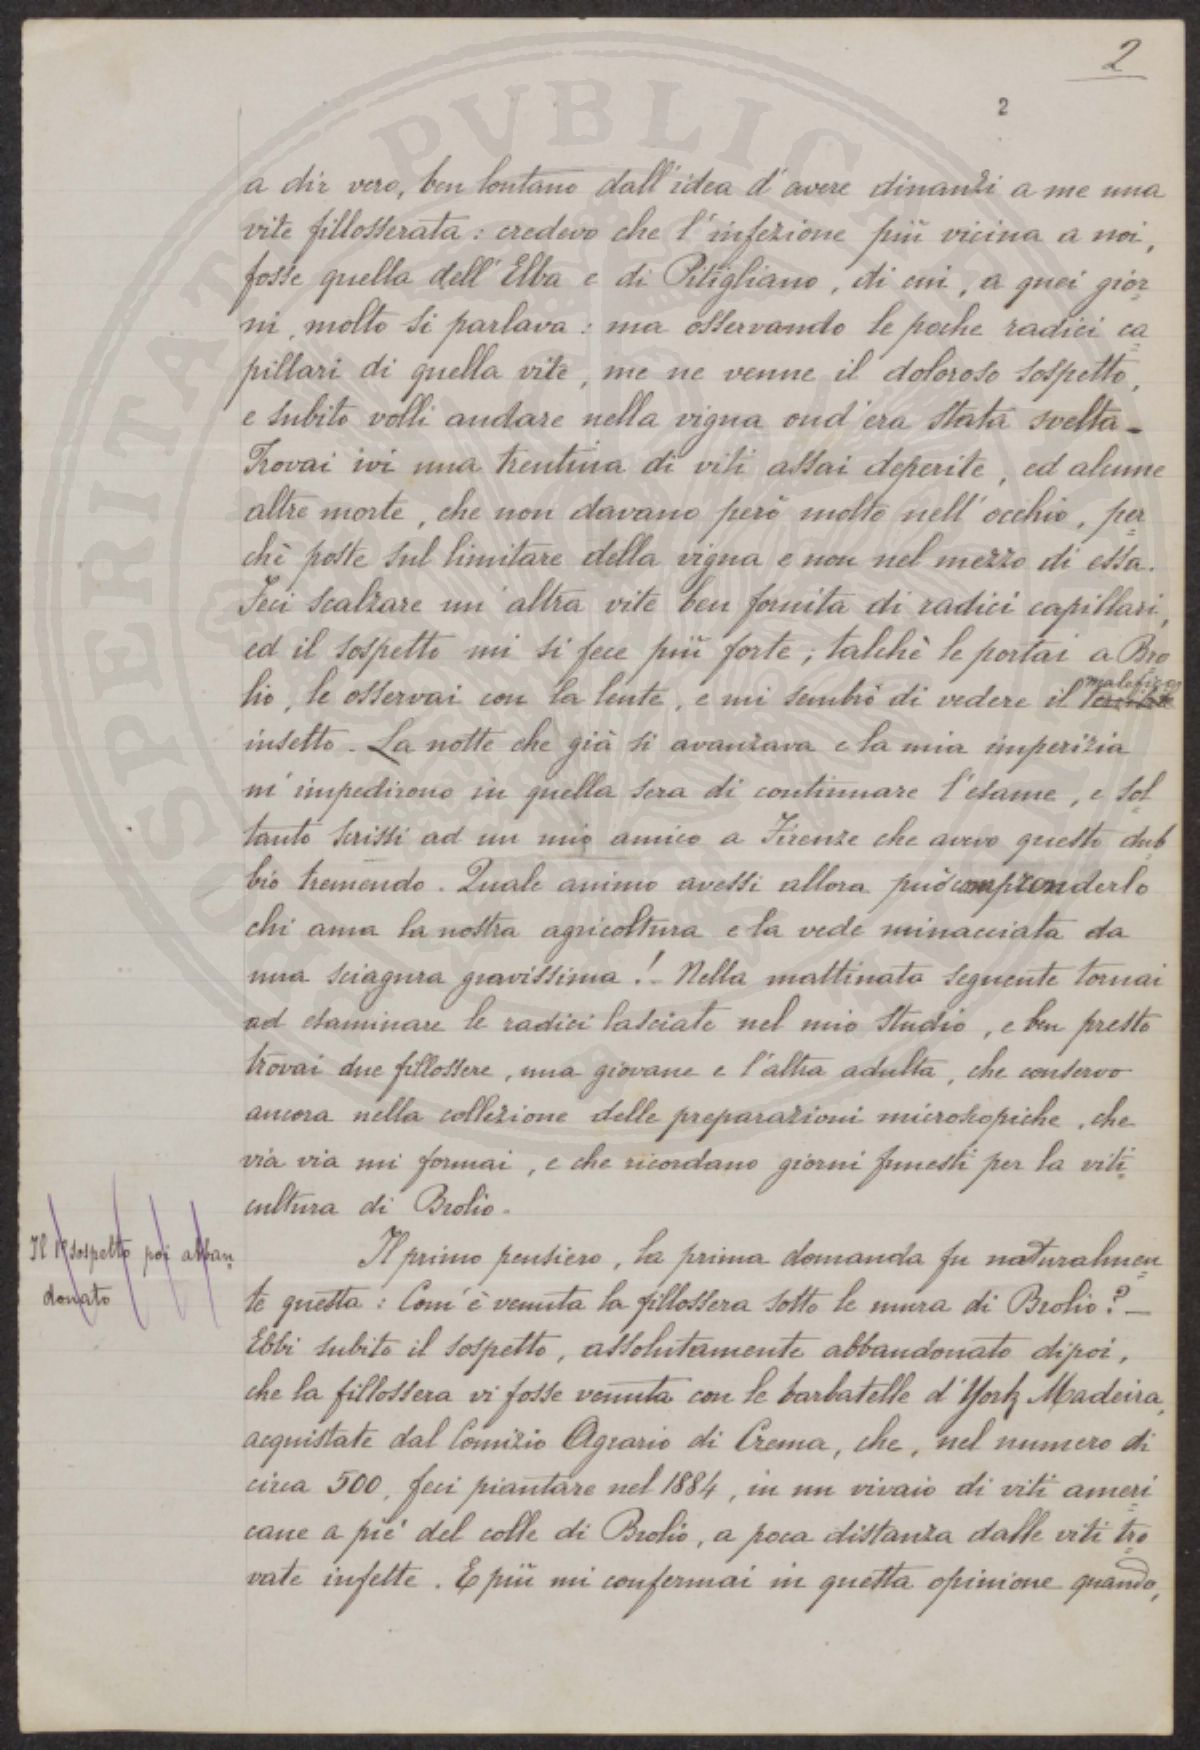 2
2
a dir vero, ben lontano dall'idea d'avere dinanzi a me una
vite fillosserata: credevo che l'infezione più vicina a noi,
fosse quella dell'Elba e di Pitigliano, di cui, a quei gior
ni, molto si parlava: ma osservando le poche radici ca
pillari di quella vite, me ne venne il doloroso sospetto,
e subito volli andare nella vigna ond'era stata svelta.
Trovai ivi una trentina di viti assai deperite, ed alcune
altre morte, che non davano però molto nell'occhio, per
chè poste sul limitare della vigna e non nel mezzo di essa.
Feci scalzare un'altra vite ben fornita di radici capillari,
ed il sospetto mi si fece più forte; talchè le portai a Bro
malefico
lio, le osservai con la lente, e mi sembrò di vedere il
insetto. La notte che già si avanzava e la mia imperizia
m'impedirono in quella sera di continuare l'esame, e sol
tanto scrissi ad un mio amico a Firenze che avevo questo dub
bio tremendo. Quale animo avessi allora può comprenderlo
chi ama la nostra agricoltura e la vede minacciata da
una sciagura gravissima! - Nella mattinata seguente tornai
ad esaminare le radici lasciate nel mio studio, e ben presto
trovai due fillossere, una giovane e l'altra adulta, che conservo
ancora nella collezione delle preparazioni microscopiche, che
via via mi formai, e che ricordano giorni funesti per la viti
cultura di Brolio.
Il sospetto poi abban
donato
Il primo pensiero, la prima domanda fu naturalmen
te questa: Com'è venuta la fillossera sotto le mura di Brolio? -
Ebbi subito il sospetto, assolutamente abbandonato dipoi,
che la fillossera vi fosse venuta con le barbatelle d'York Madeira,
acquistate dal Comizio Agrario di Crema, che, nel numero di
circa 500, feci piantare nel 1884, in un vivaio di viti ameri
cane a piè del colle di Brolio, a poca distanza dalle viti tro
vate infette. E più mi confermai in questa opinione quando,